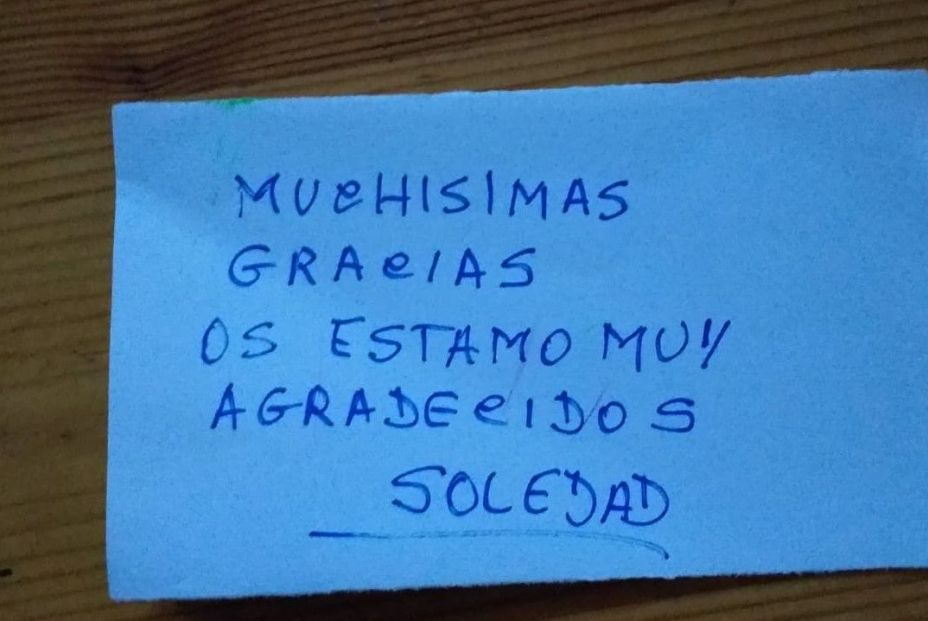 MUCHISIMAS
GRACIAS
OS ESTAMO MUY
AGRADECIDOS
SOLEDAD